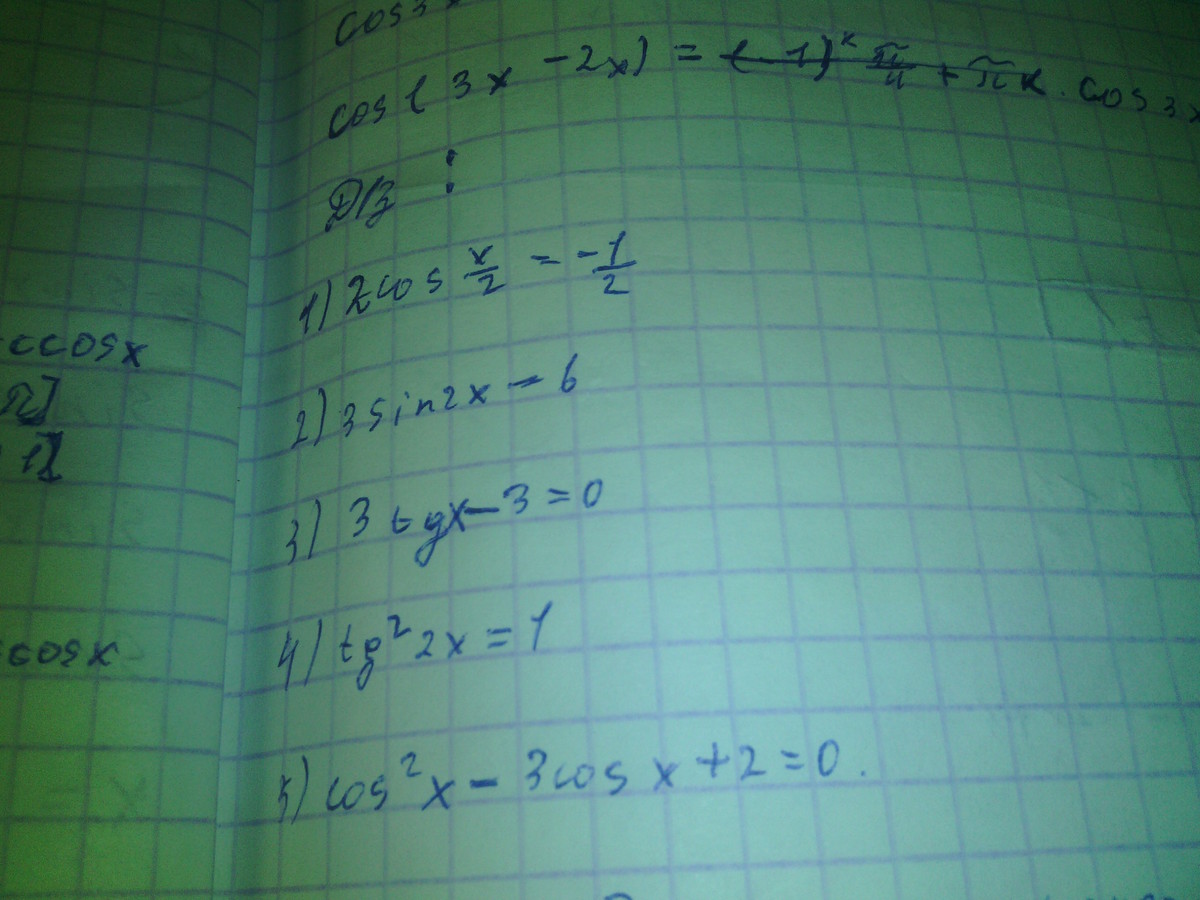 cos3x
cos(3x-2x) = (-1)ᵏ π/4 + πk. cos3x
Д/з :
1) 2cos x/2 = -1/2
2) 3sin2x = 6
3) 3tgx-3=0
4) tg²2x=1
5) cos²x - 3cosx+2=0.
ccosx
π]
1]
ccosx